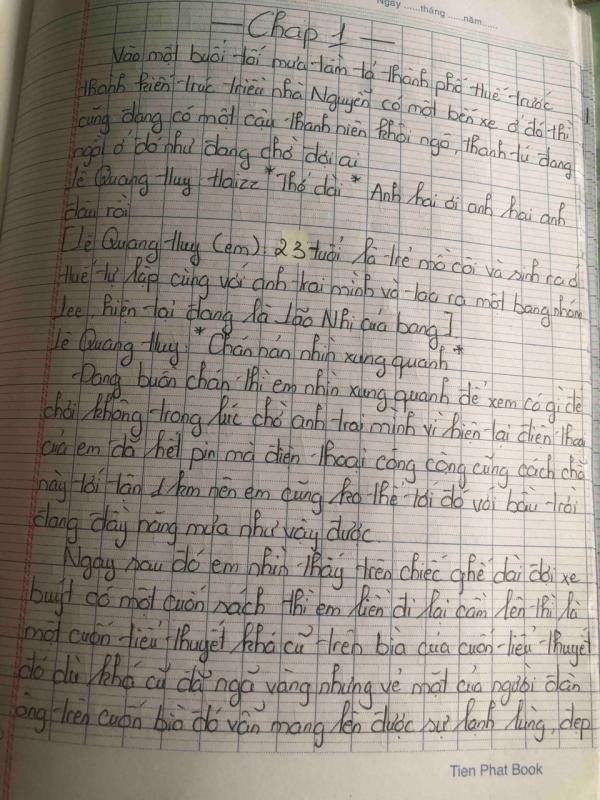 Ngày ......tháng ......năm......
— Chap 1 —
Vào một buổi tối mưa tầm tả thành phố Huế trước
thành kiến trúc triều nhà Nguyễn có một bến xe ở đó thì
cũng đang có một cậu thanh niên khôi ngô, thanh tú đang
ngồi ở đó như đang chờ đợi ai
Lê Quang Huy: Haizz *Thở dài* Anh hai ơi anh hai anh
đâu rồi
[Lê Quang Huy (em): 23 tuổi là trẻ mồ côi và sinh ra ở
Huế tự lập cùng với anh trai mình và tạo ra một bang nhóm
lee, hiện tại đang là Lão Nhị của bang]
Lê Quang Huy: *Chán nản nhìn xung quanh*
- Đang buồn chán thì em nhìn xung quanh để xem có gì để
chơi không trong lúc chờ anh trai mình vì hiện tại điện thoại
của em đã hết pin mà điện thoại công cộng cũng cách chỗ
này tới tận 1 km nên em cũng ko thể tới đó với bầu trời
đang đầy nặng mưa như vậy được.
Ngay sau đó em nhìn thấy trên chiếc ghế dài đợi xe
buýt đó một cuốn sách thì em liền đi lại cầm lên thì là
một cuốn tiểu thuyết khá cũ trên bìa của cuốn tiểu thuyết
đó dù khá cũ đã ngã vàng nhưng vẻ mặt của người đàn
ông trên cuốn bìa đó vẫn mang lên được sự lạnh lùng, đẹp
Tien Phat Book